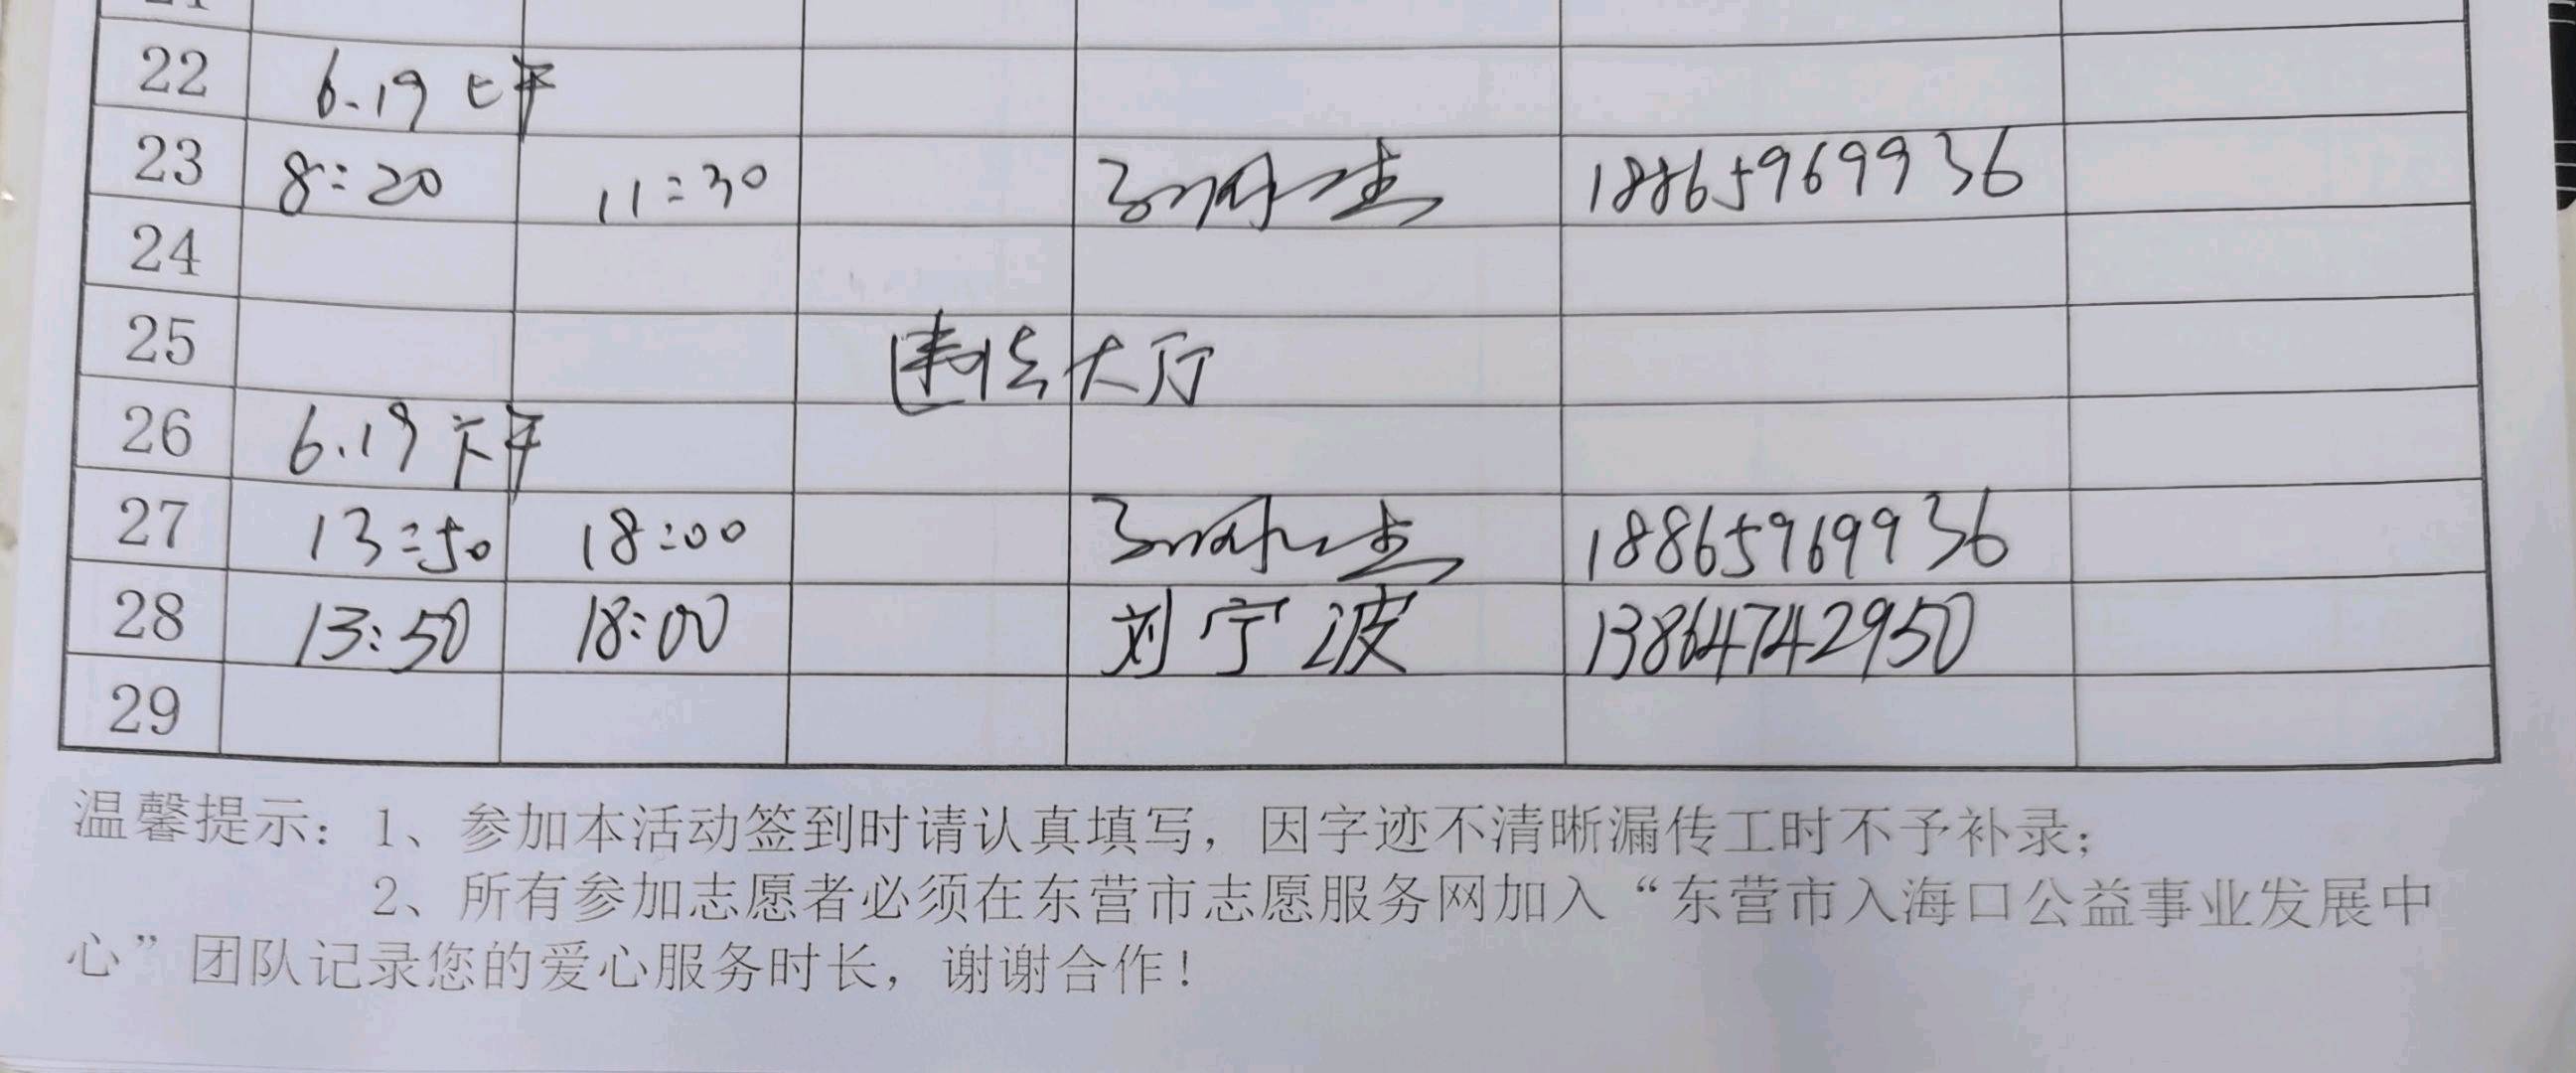 22 6.19 上午
23 8:20 11:30 18865969936
24
25 违法大厅
26 6.19 下午
27 13:50 18:00 18865969936
28 13:50 18:00 刘宁波 13864742950
29
温馨提示：1、参加本活动签到时请认真填写，因字迹不清晰漏传工时不予补录；
2、所有参加志愿者必须在东营市志愿服务网加入“东营市入海口公益事业发展中
心”团队记录您的爱心服务时长，谢谢合作！